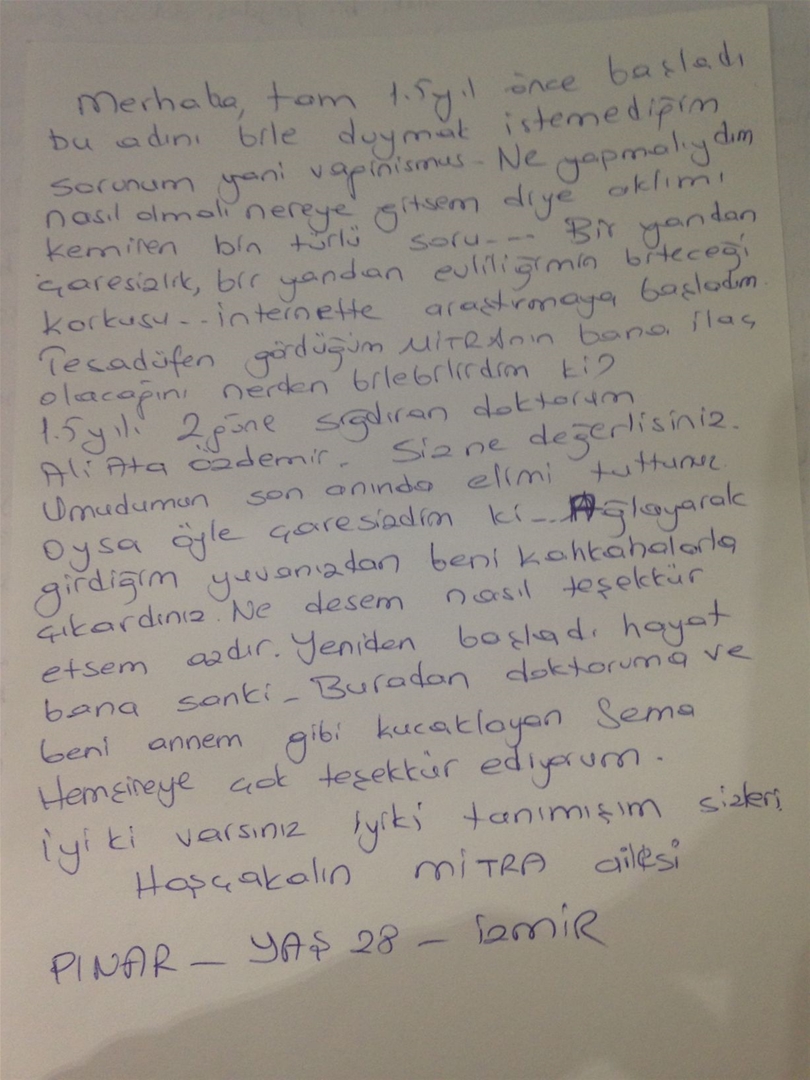 Merhaba, tam 1.5 yıl önce başladı
bu adını bile duymak istemediğim
sorunum yani vajinismus - Ne yapmalıydım
nasıl olmalı nereye gitsem diye aklımı
kemiren bin türlü soru--- Bir yandan
çaresizlik, bir yandan evliliğimin biteceği
korkusu.. internette araştırmaya başladım.
Tesadüfen gördüğüm MİTRAnın bana ilaç
olacağını nerden bilebilirdim ki?
1.5 yılı 2 güne sığdıran doktorum
Ali Ata Özdemir. Siz ne değerlisiniz.
Umudumun son anında elimi tuttunuz.
Oysa öyle çaresizdim ki... Ağlayarak
girdiğim yuvanızdan beni kahkahalarla
çıkardınız. Ne desem nasıl teşekkür
etsem azdır. Yeniden başladı hayat
bana sanki - Buradan doktoruma ve
beni annem gibi kucaklayan Sema
Hemşireye çok teşekkür ediyorum.
iyi ki varsınız iyiki tanımışım sizleri
Hoşçakalın MİTRA ailesi
PINAR - YAŞ 28 - İZMİR